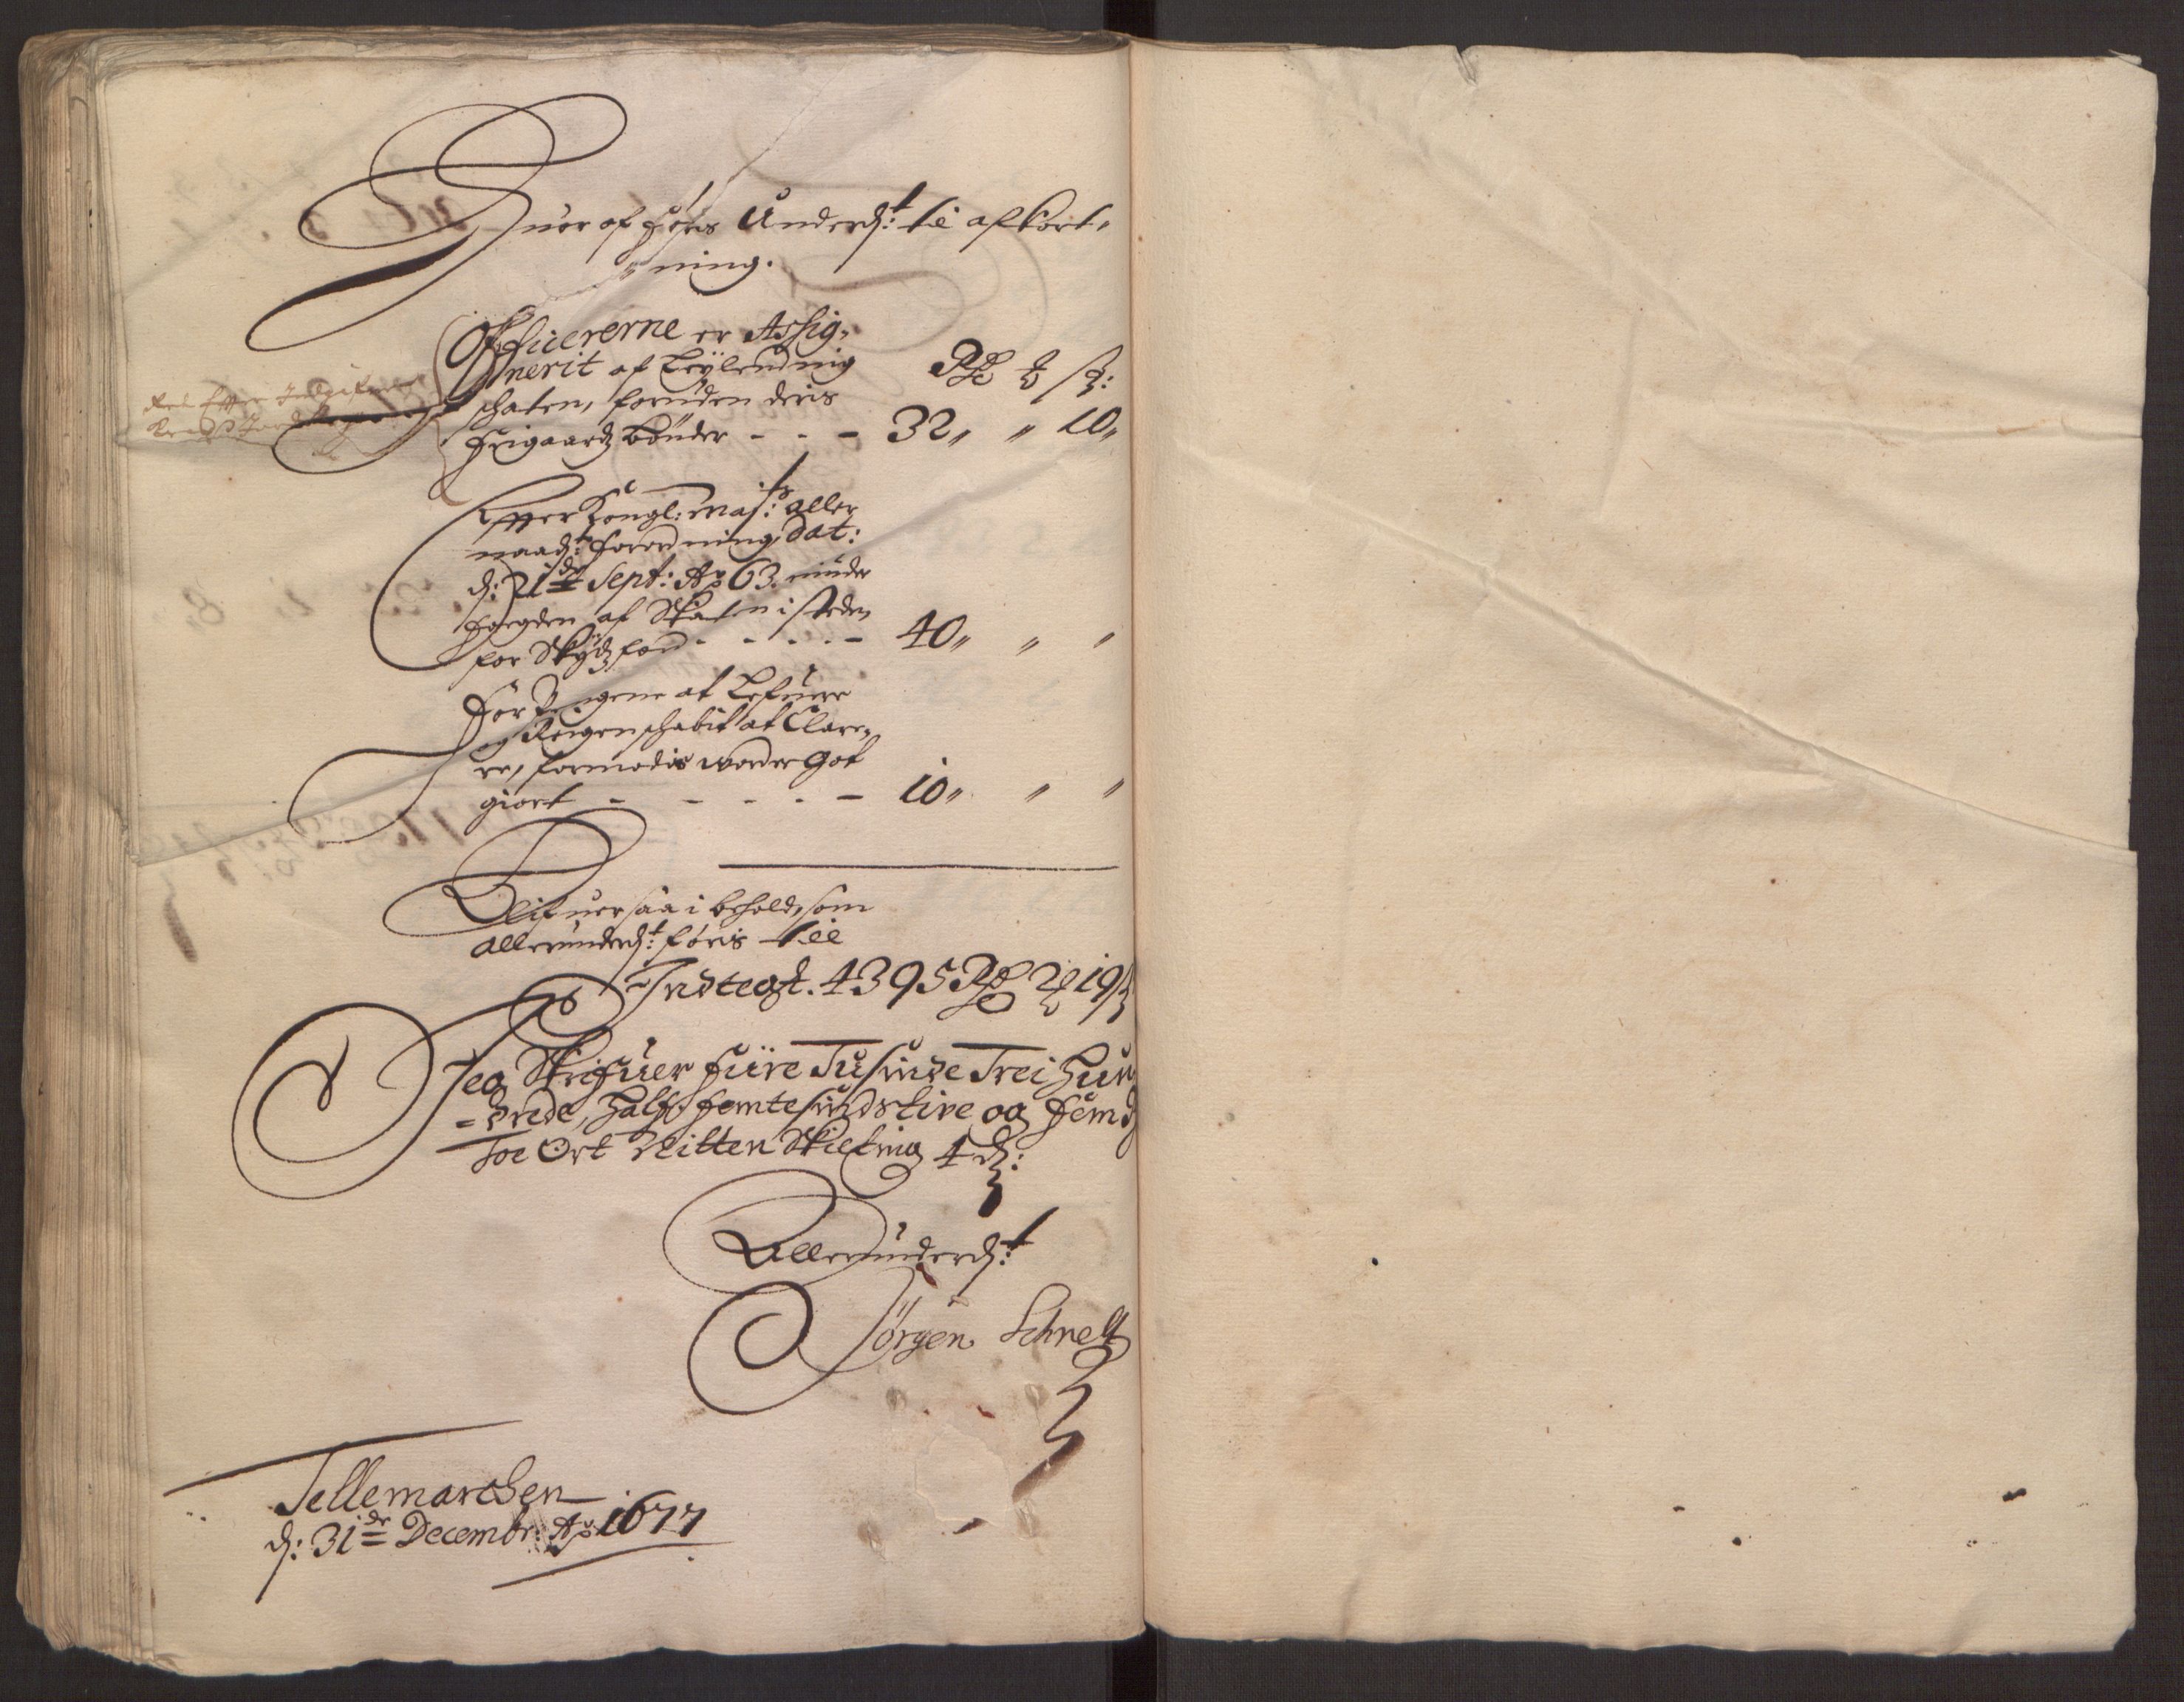 Huor af føris Underd:t til afkort-
ning.
Officererne er Assig-
nerit af Leylending
schaten, foruden deris
frigaardz bønder - - - 32,, ,, 10,,
Rd ort ß:
Efter Kongl: Maj:ts aller
naad:te forordning dat:
d: 21de Sept: Ao 63. niuder
fogden af Skaten i steden
for Skydzferd - - - - - 40,, ,, ,,
For Pengene at Lefuere
og Reigenschabit at Clare-
re, formodis worder got
giort - - - - - 10,, ,, ,,
Blifuer saa i behold, som
allerunderd:t føris til
Indtegt. 4395 Rd 2 ort 19 ß
Jeg Skrifuer fiire Tusinde Trei Hun
=drede, Half femtesindstive og fem d
Toe Ort Nitten Skilling
Allerunderd:t
Jørgen Schnell
Tellemarchen
d: 31de Decembr: Ao 1677